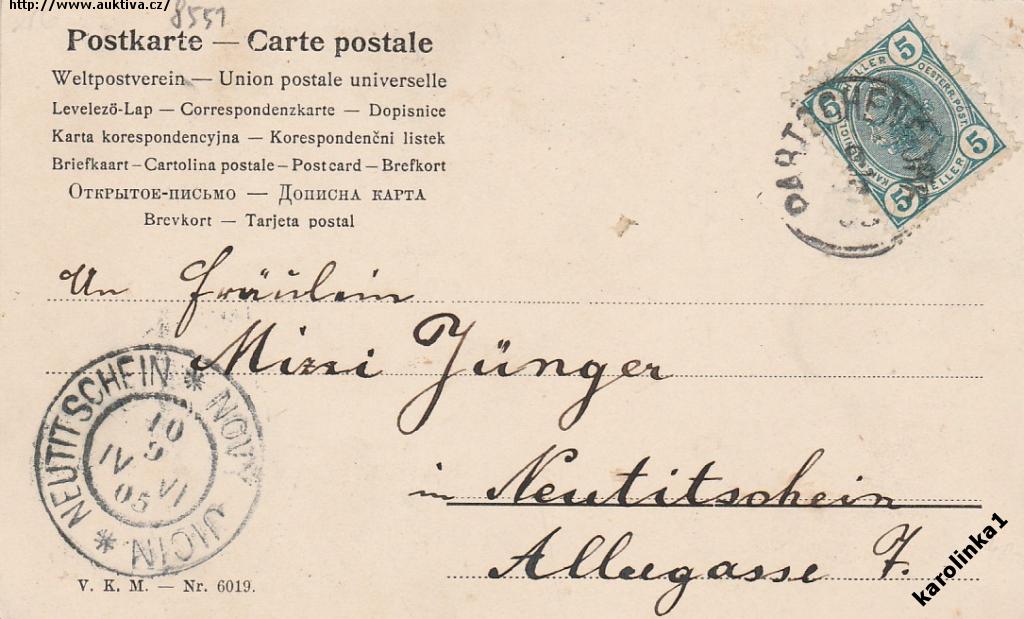 http://www.auktiva.cz/
8551
Postkarte — Carte postale
Weltpostverein — Union postale universelle
Levelező-Lap — Correspondenzkarte — Dopisnice
Karta korespondencyjna — Korespondenčni listek
Briefkaart — Cartolina postale — Post card — Brefkort
Открытое-письмо — Дописна карта
Brevkort — Tarjeta postal
5 HELLER 5
OESTERR. POST.
An Fräulein
Mizzi Jünger
in Neutitschein
Alleegasse 7.
* NEUTITSCHEIN * NOVÝ JIČIN
10
IV VI
05
V. K. M. — Nr. 6019.
karolinka1